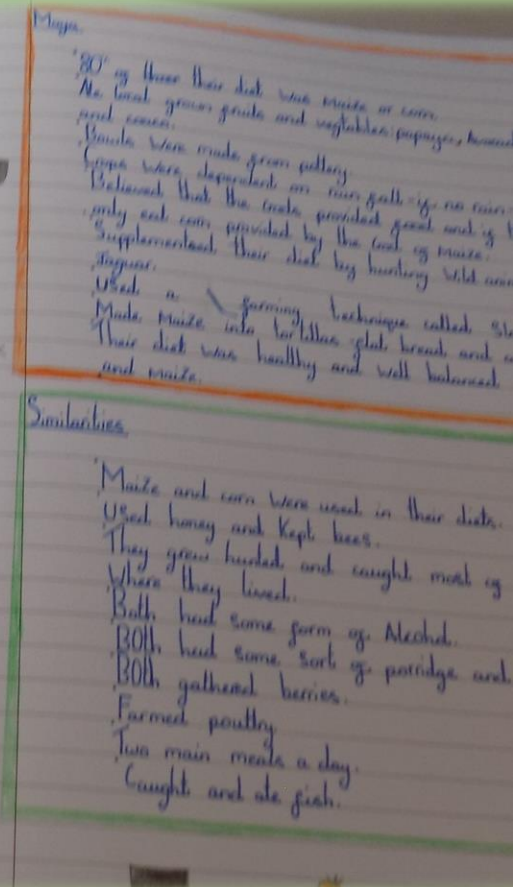 Maya.
'80' of thier their diet was maize or corn.
Ate local grown fruits and vegtables: papayas,
and
Bowls were made from pottery.
Crops were dependent on rain fall - if no rain
Believed that the Gods provided food and if
only eat corn provided by the God of Maize.
Supplemented their diet by hunting wild
Jaguar.
Used a farming technique called
Made maize into tortillas flat bread and
Their diet was healthy and well balanced
and maize.
Similarities
Maize and corn were used in their diets.
Used honey and Kept bees.
They grew hunted and caught most of
Where they lived.
Both had some form of Alcohol.
BOth had some sort of porridge and
BOth gathered berries.
Farmed poultry
Two main meals a day.
Caught and ate fish.